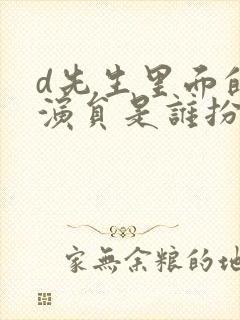 d先生里面的
演員是誰扮
家無余粮的地